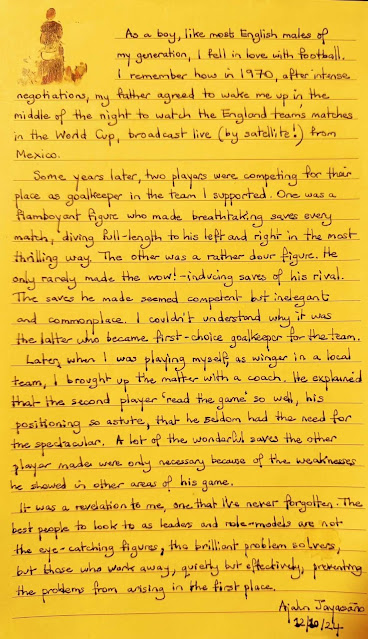 As a boy, like most English males of
my generation, I fell in love with football.
I remember how in 1970, after intense
negotiations, my father agreed to wake me up in the
middle of the night to watch the England teams matches
in the World Cup, broadcast live (by satellite!) from
Mexico.
Some years later, two players were competing for their
place as goalkeeper in the team I supported. One was a
flamboyant figure who made breathtaking saves every
match, diving full-length to his left and right in the most
thrilling way. The other was a rather dour figure. He
only rarely made the wow!-inducing saves of his rival.
The saves he made seemed competent but inelegant
and commonplace. I couldn't understand why it was
the latter who became first-choice goalkeeper for the team.
Later, when I was playing myself, as winger in a local
team, I brought up the matter with a coach. He explained
that the second player 'read the game' so well, his
positioning so astute, that he seldom had the need for
the spectacular. A lot of the wonderful saves the other
player made were only necessary because of the weaknesses
he showed in other areas of his game.
It was a revelation to me, one that I've never forgotten. The
best people to look to as leaders and role-models are not
the eye-catching figures, the brilliant problem solvers,
but those who work away, quietly but effectively, preventing
the problems from arising in the first place.
Ajahn Jayasāro
12/10/24